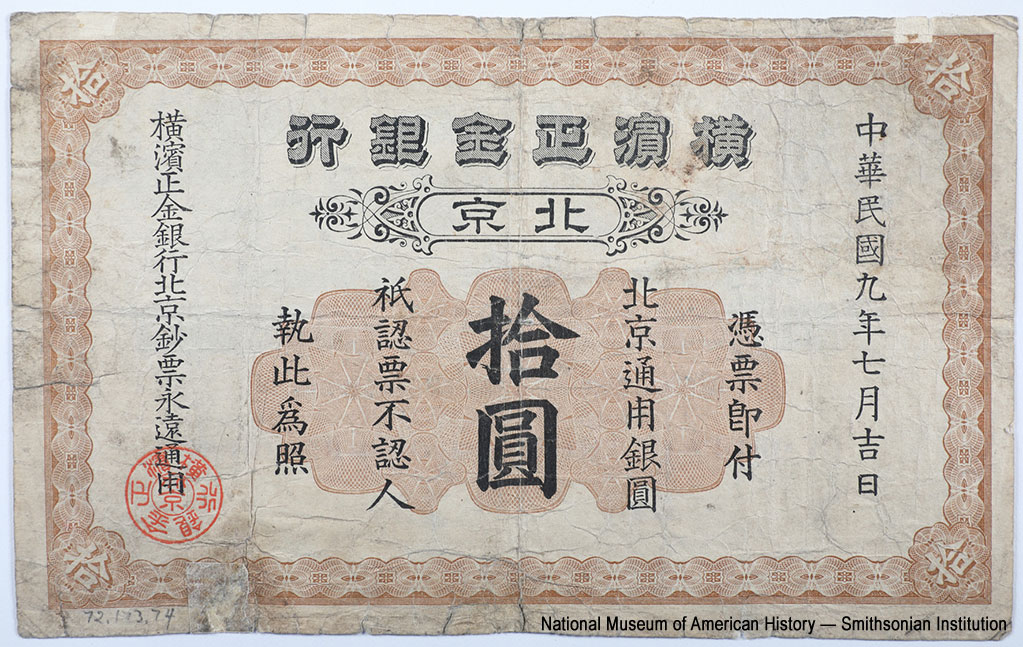 拾
拾
横濱正金銀行
北京
中華民國九年七月吉日
憑票即付
北京通用銀圓
拾圓
祇認票不認人
執此為照
橫濱正金銀行北京鈔票永遠通用
橫濱正金銀行
北京
拾
拾
72.173.74
National Museum of American History — Smithsonian Institution